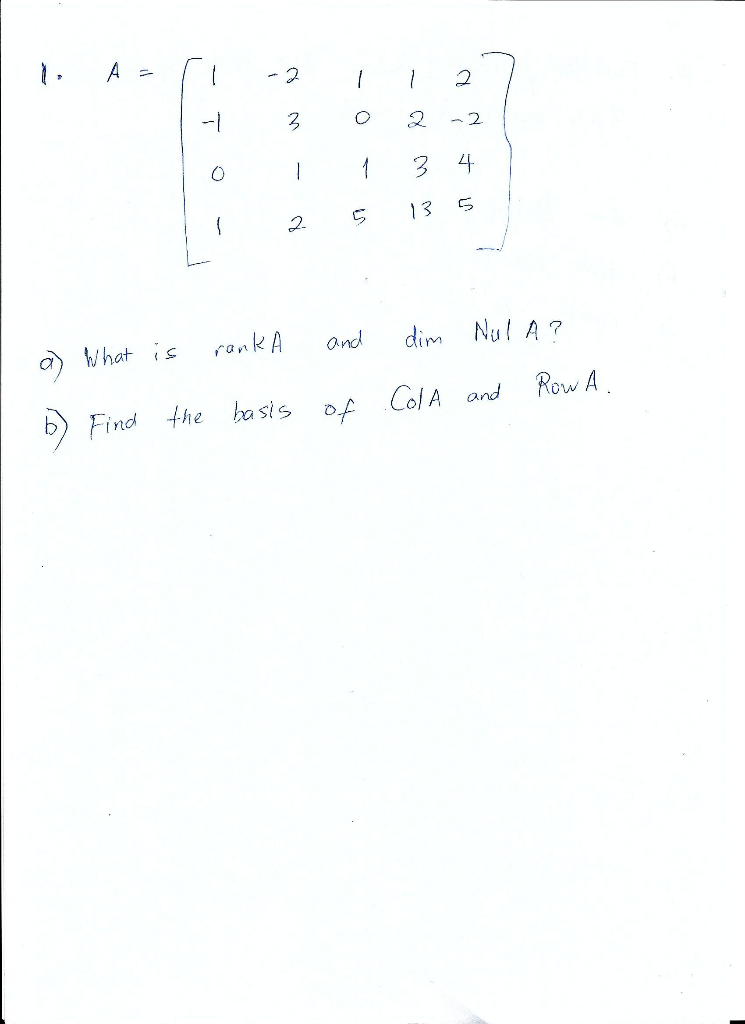 1. A = [ 1 -2 1 1 2
-1 3 0 2 -2
0 1 1 3 4
1 2 5 13 5 ]
a) What is rank A and dim Nul A?
b) Find the basis of Col A and Row A.